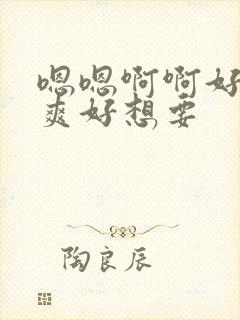 嗯嗯啊啊好
爽好想要
陶良辰